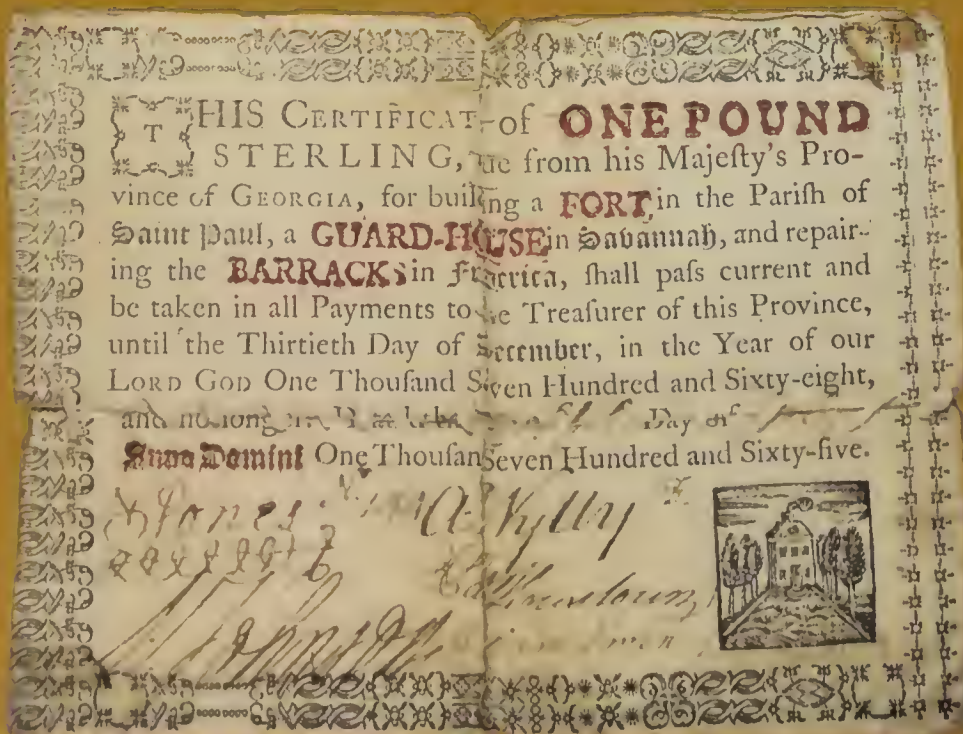 THIS CERTIFICAT of ONE POUND
STERLING, ue from his Majeſty's Pro-
vince of GEORGIA, for buil ng a FORT in the Pariſh of
Saint Paul, a GUARD-HOUSE in Savannah, and repair-
ing the BARRACKS in Fr erica, ſhall paſs current and
be taken in all Payments to e Treaſurer of this Province,
until the Thirtieth Day of December, in the Year of our
LORD GOD One Thouſand Seven Hundred and Sixty-eight,
and no long Day of
Anno Domini One Thouſan Seven Hundred and Sixty-five.
Jones